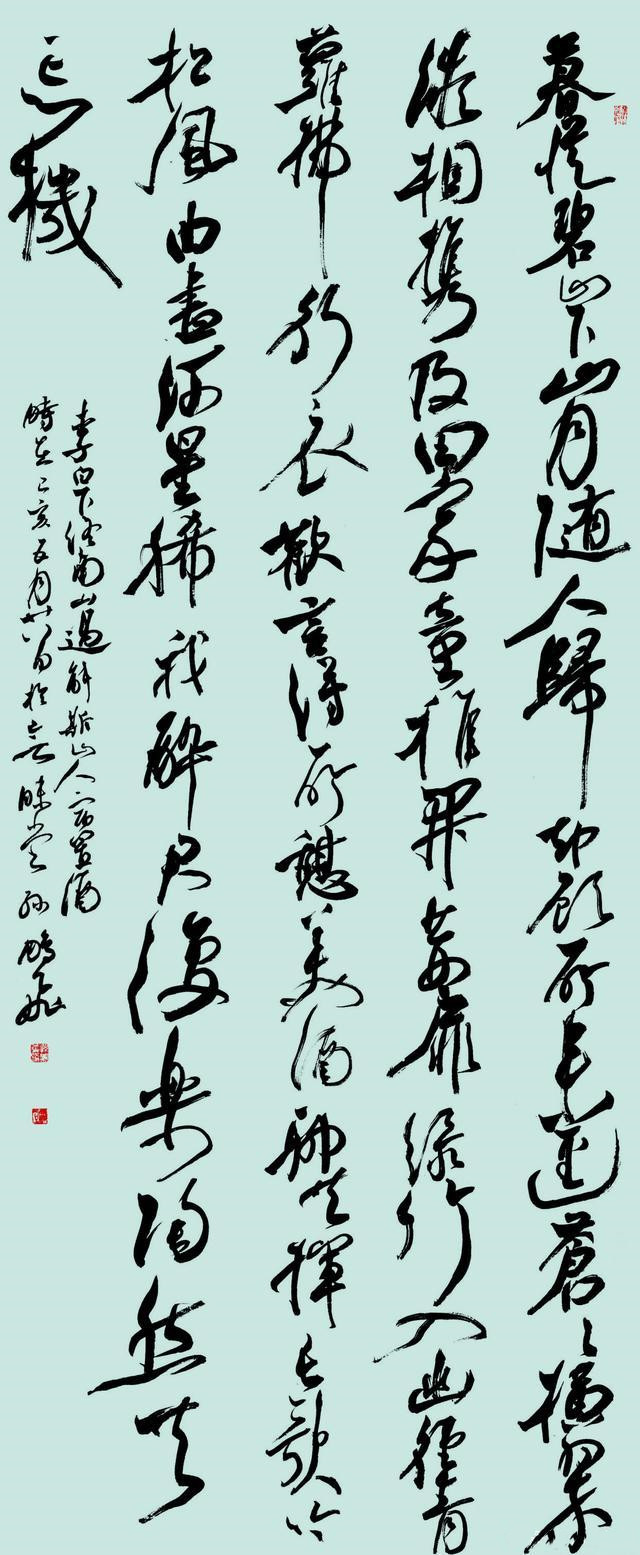 暮從碧山下山月隨人歸却顧所來逕蒼々橫翠
微相攜及田家童稚開荊扉綠竹入幽徑青
蘿拂行衣歡言得所憩美酒聊共揮長歌吟
松風曲盡河星稀我醉君復樂陶然共
忘機
李白下終南山過斛斯山人宿置酒
時在己亥五月廿八日於昧堂孫鵬飛